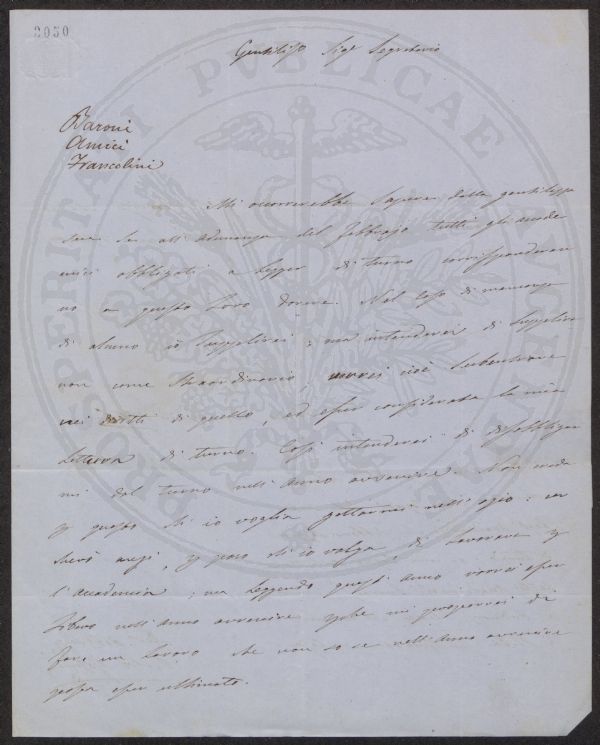 2050
Gentiliss.o Sig.r Segretario
Baroni
Amici
Francolini
Mi occorrerebbe sapere dalla gentilezza
sua se all'adunanza del febbrajo tutti gli accade
mici obbligati a legger di turno corrisponderan
no a questo loro dovere. Nel caso di mancanza
di alcuno io supplirei; ma intenderei di supplire
non come straordinario, vorrei cioè subentrare
nei diritti di quello, ed esser considerata la mia
lettura di turno. Così intenderei di disobbligar
mi dal turno nell'anno avvenire. Non creda
p questo ch'io voglia gettarmi nell'ozio:
anzi, p poco ch'io valga, di lavorare p
l'accademia; ma leggendo quest'anno vorrei esser
libero nell'anno avvenire pche mi proporrei di
fare un lavoro che non so se nell'anno avvenire
possa esser ultimato.
PROSPERITATI PVBLICAE AVGENDAE